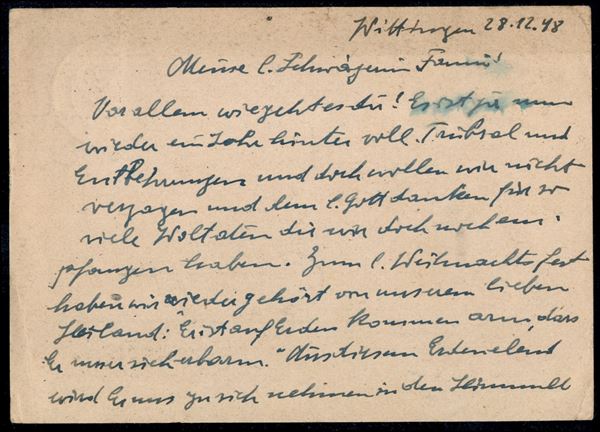 Wittingen 28.12.48
Meine l. Schwägerin Fanni!
Vor allem wie geht es dir! Es ist ja nun
wieder ein Jahr hinter voll Trübsal und
Entbehrungen und doch wollen wir nicht
verzagen und dem l. Gott danken für so
viele Woltaten die wir doch noch em-
pfangen haben. Zum l. Weihnachtsfest
haben wir wieder gehört von unserem lieben
Heiland: "Er ist auf Erden kommen arm, dass
Er unser sich erbarm." Aus diesem Erdenelend
wird Er uns zu sich nehmen in den Himmel